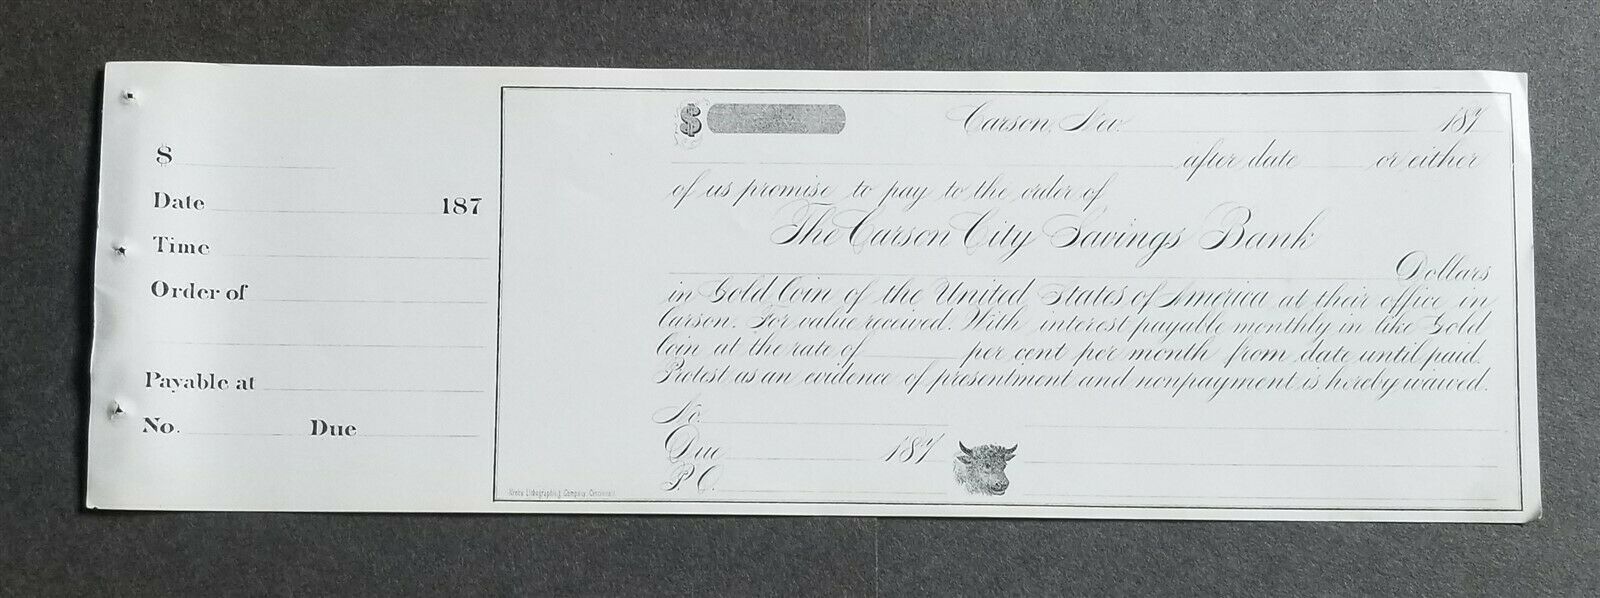 $
Date 187
Time
Order of
Payable at
No. Due
$ Carson, Nev. 187
after date or either
of us promise to pay to the order of
The Carson City Savings Bank
Dollars
in Gold Coin of the United States of America at their office in
Carson. For value received. With interest payable monthly in like Gold
Coin at the rate of per cent per month from date until paid.
Protest as an evidence of presentment and nonpayment is hereby waived.
No.
Due 187
P.O.
Krebs Lithographing Company, Cincinnati